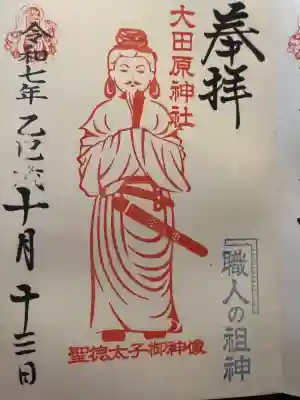 奉拝
職人の祖神
大田原神社
聖徳太子御神像
令和七年乙巳歳十月十三日